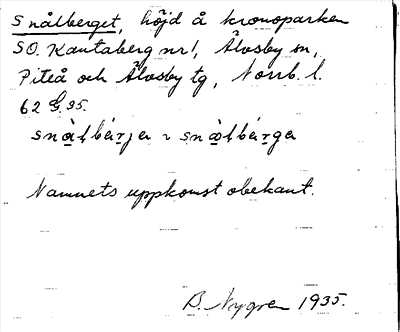 Snålberget, höjd å kronoparken
SO. Kantaberg nr 1, Älvsby sn,
Piteå och Älvsby tg, Norrb. l.
62 G. 35.
snålbárja ~ snålbárga
Namnets uppkomst obekant.
B. Nygren 1935.